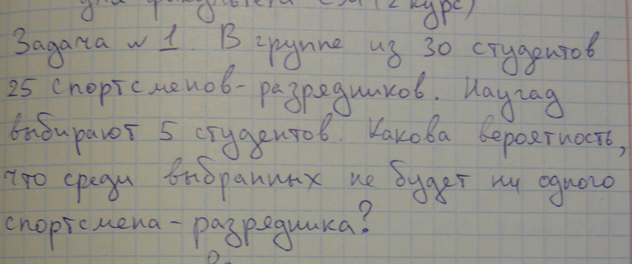 для факультета (2 курс)
Задача №1. В группе из 30 студентов
25 спортсменов-разрядников. Наугад
выбирают 5 студентов. Какова вероятность,
что среди выбранных не будет ни одного
спортсмена-разрядника?